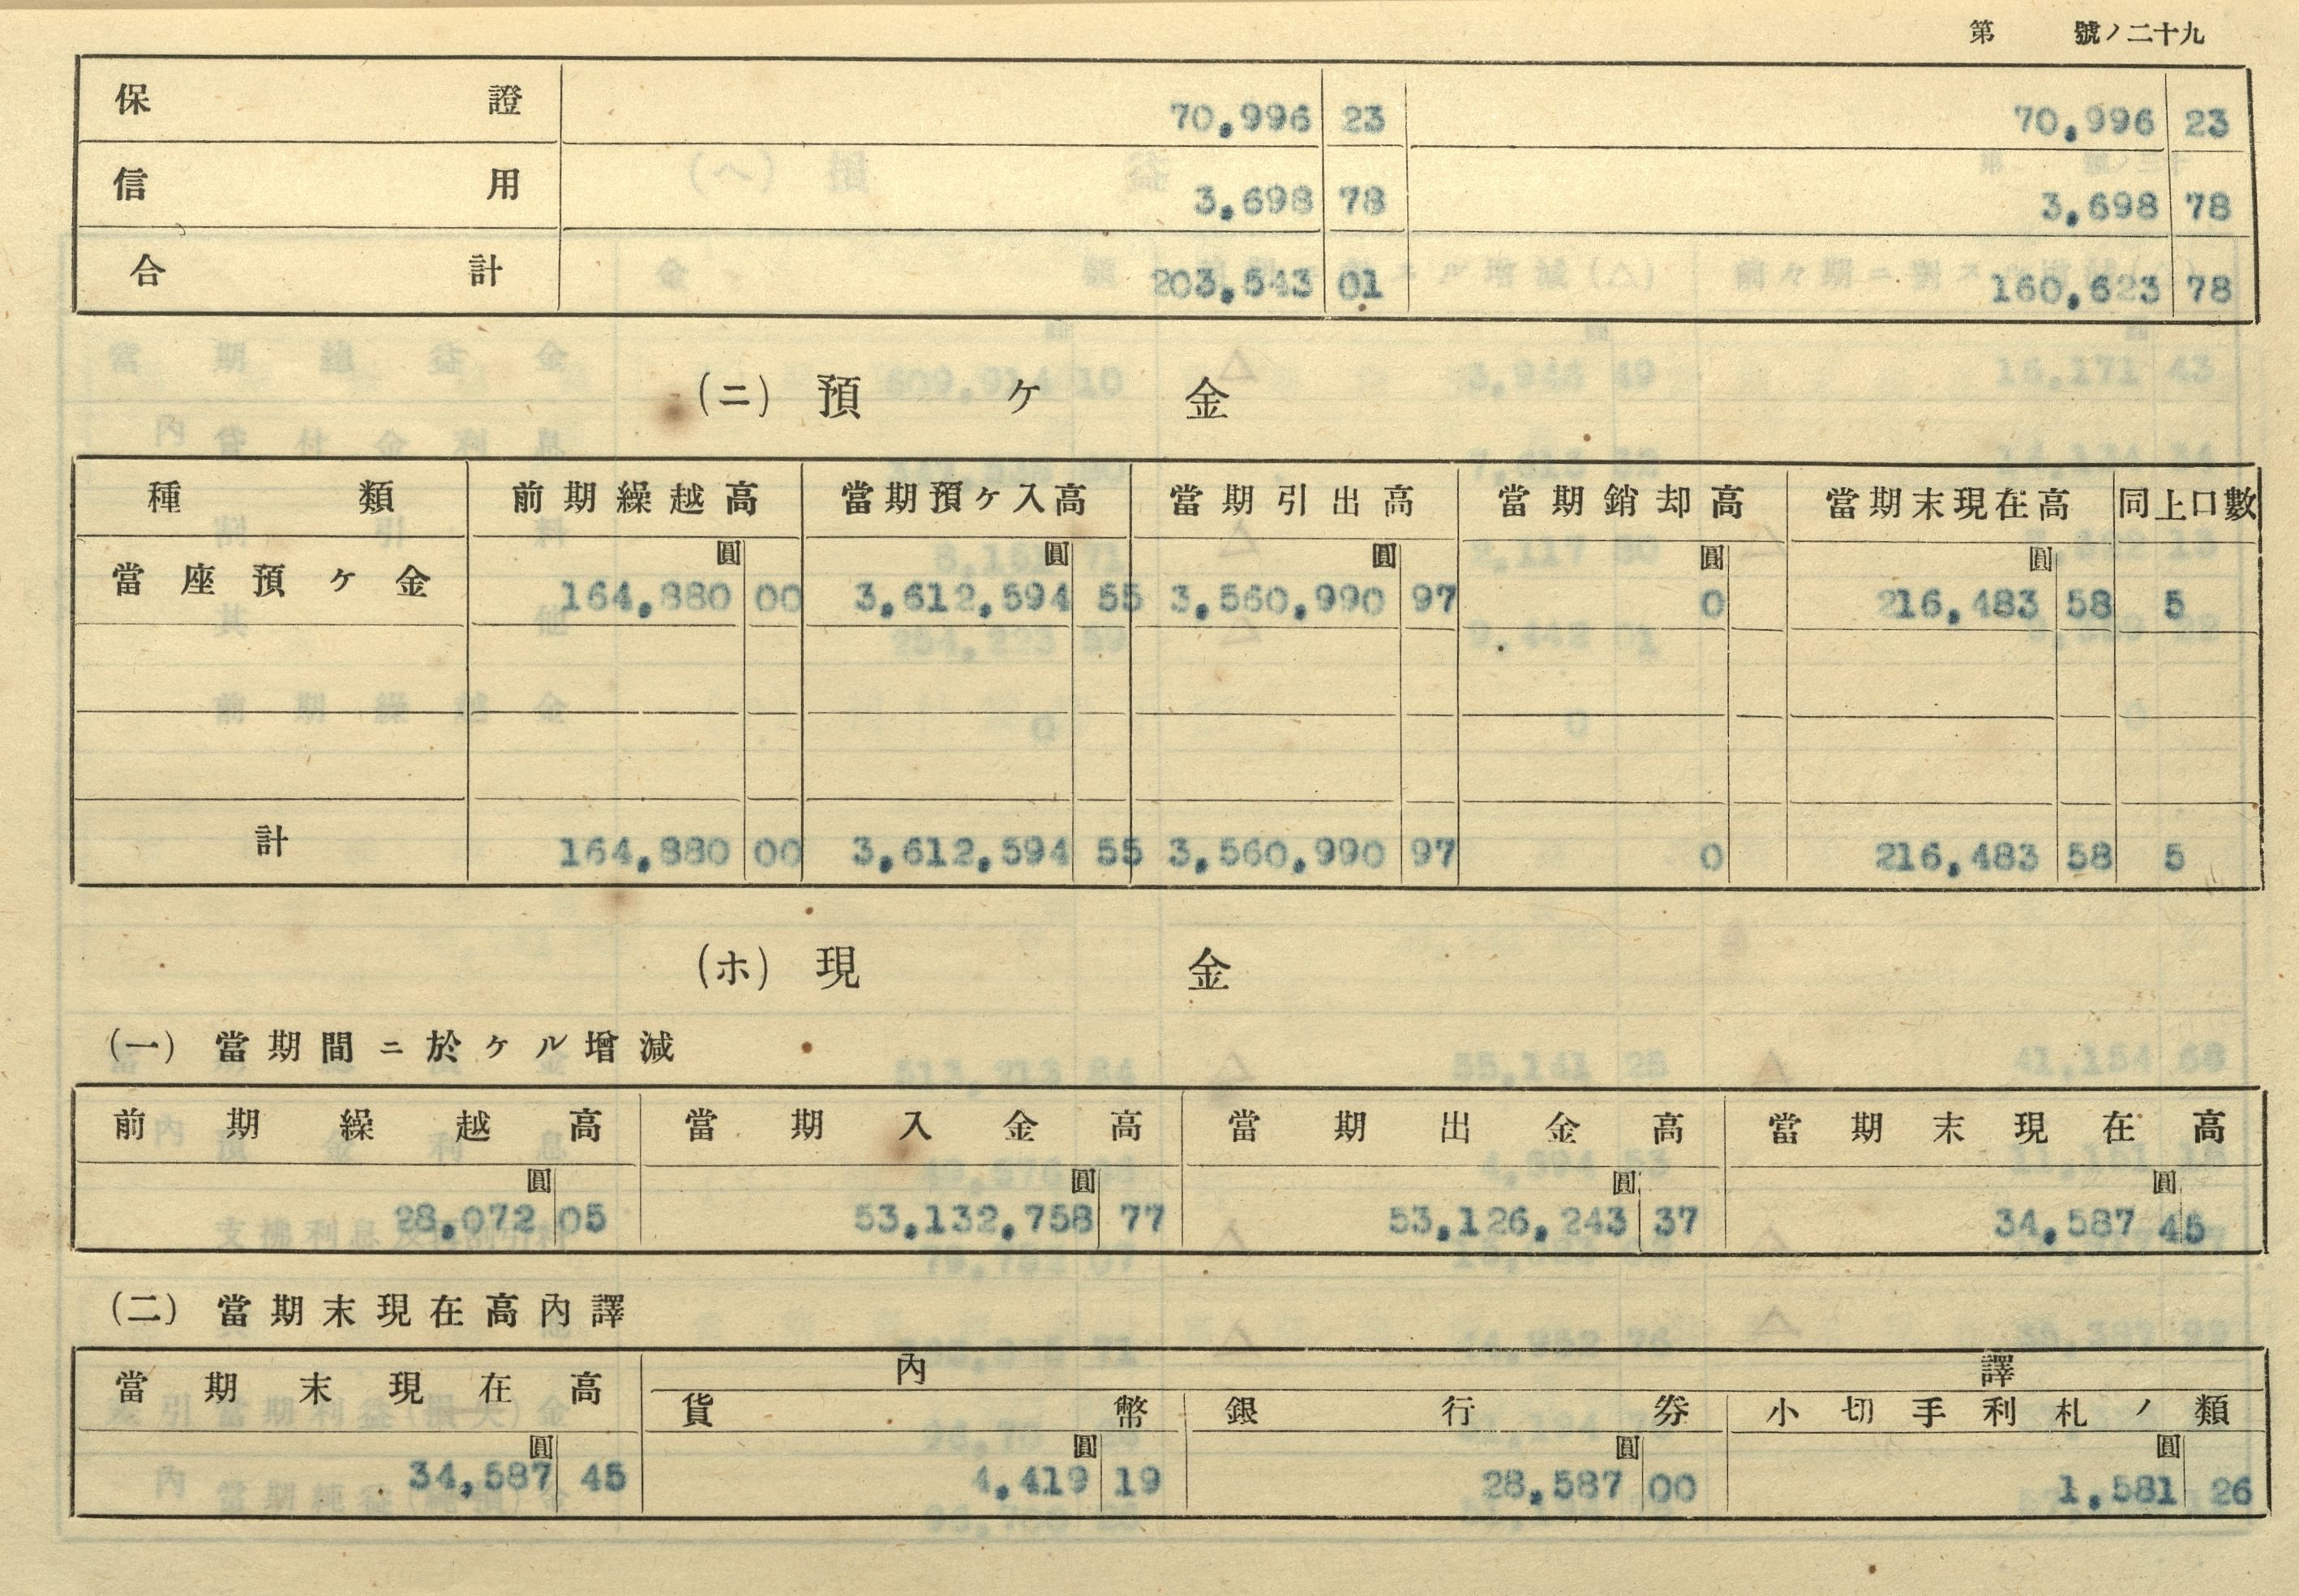 第 號ノ二十九
保證 70,996 23 70,996 23
信用 3,698 78 3,698 78
合計 203,543 01 160,623 78
(ニ) 預ケ金
種類 前期繰越高 當期預ケ入高 當期引出高 當期銷却高 當期末現在高 同上口數
圓 圓 圓 圓 圓
當座預ケ金 164,880 00 3,612,594 55 3,560,990 97 0 216,483 58 5
計 164,880 00 3,612,594 55 3,560,990 97 0 216,483 58 5
(ホ) 現金
(一) 當期間ニ於ケル增減
前期繰越高 當期入金高 當期出金高 當期末現在高
圓 圓 圓 圓
28,072 05 53,132,758 77 53,126,243 37 34,587 45
(二) 當期末現在高內譯
當期末現在高 內譯
貨幣 銀行券 小切手利札ノ類
圓 圓 圓 圓
34,587 45 4,419 19 28,587 00 1,581 26